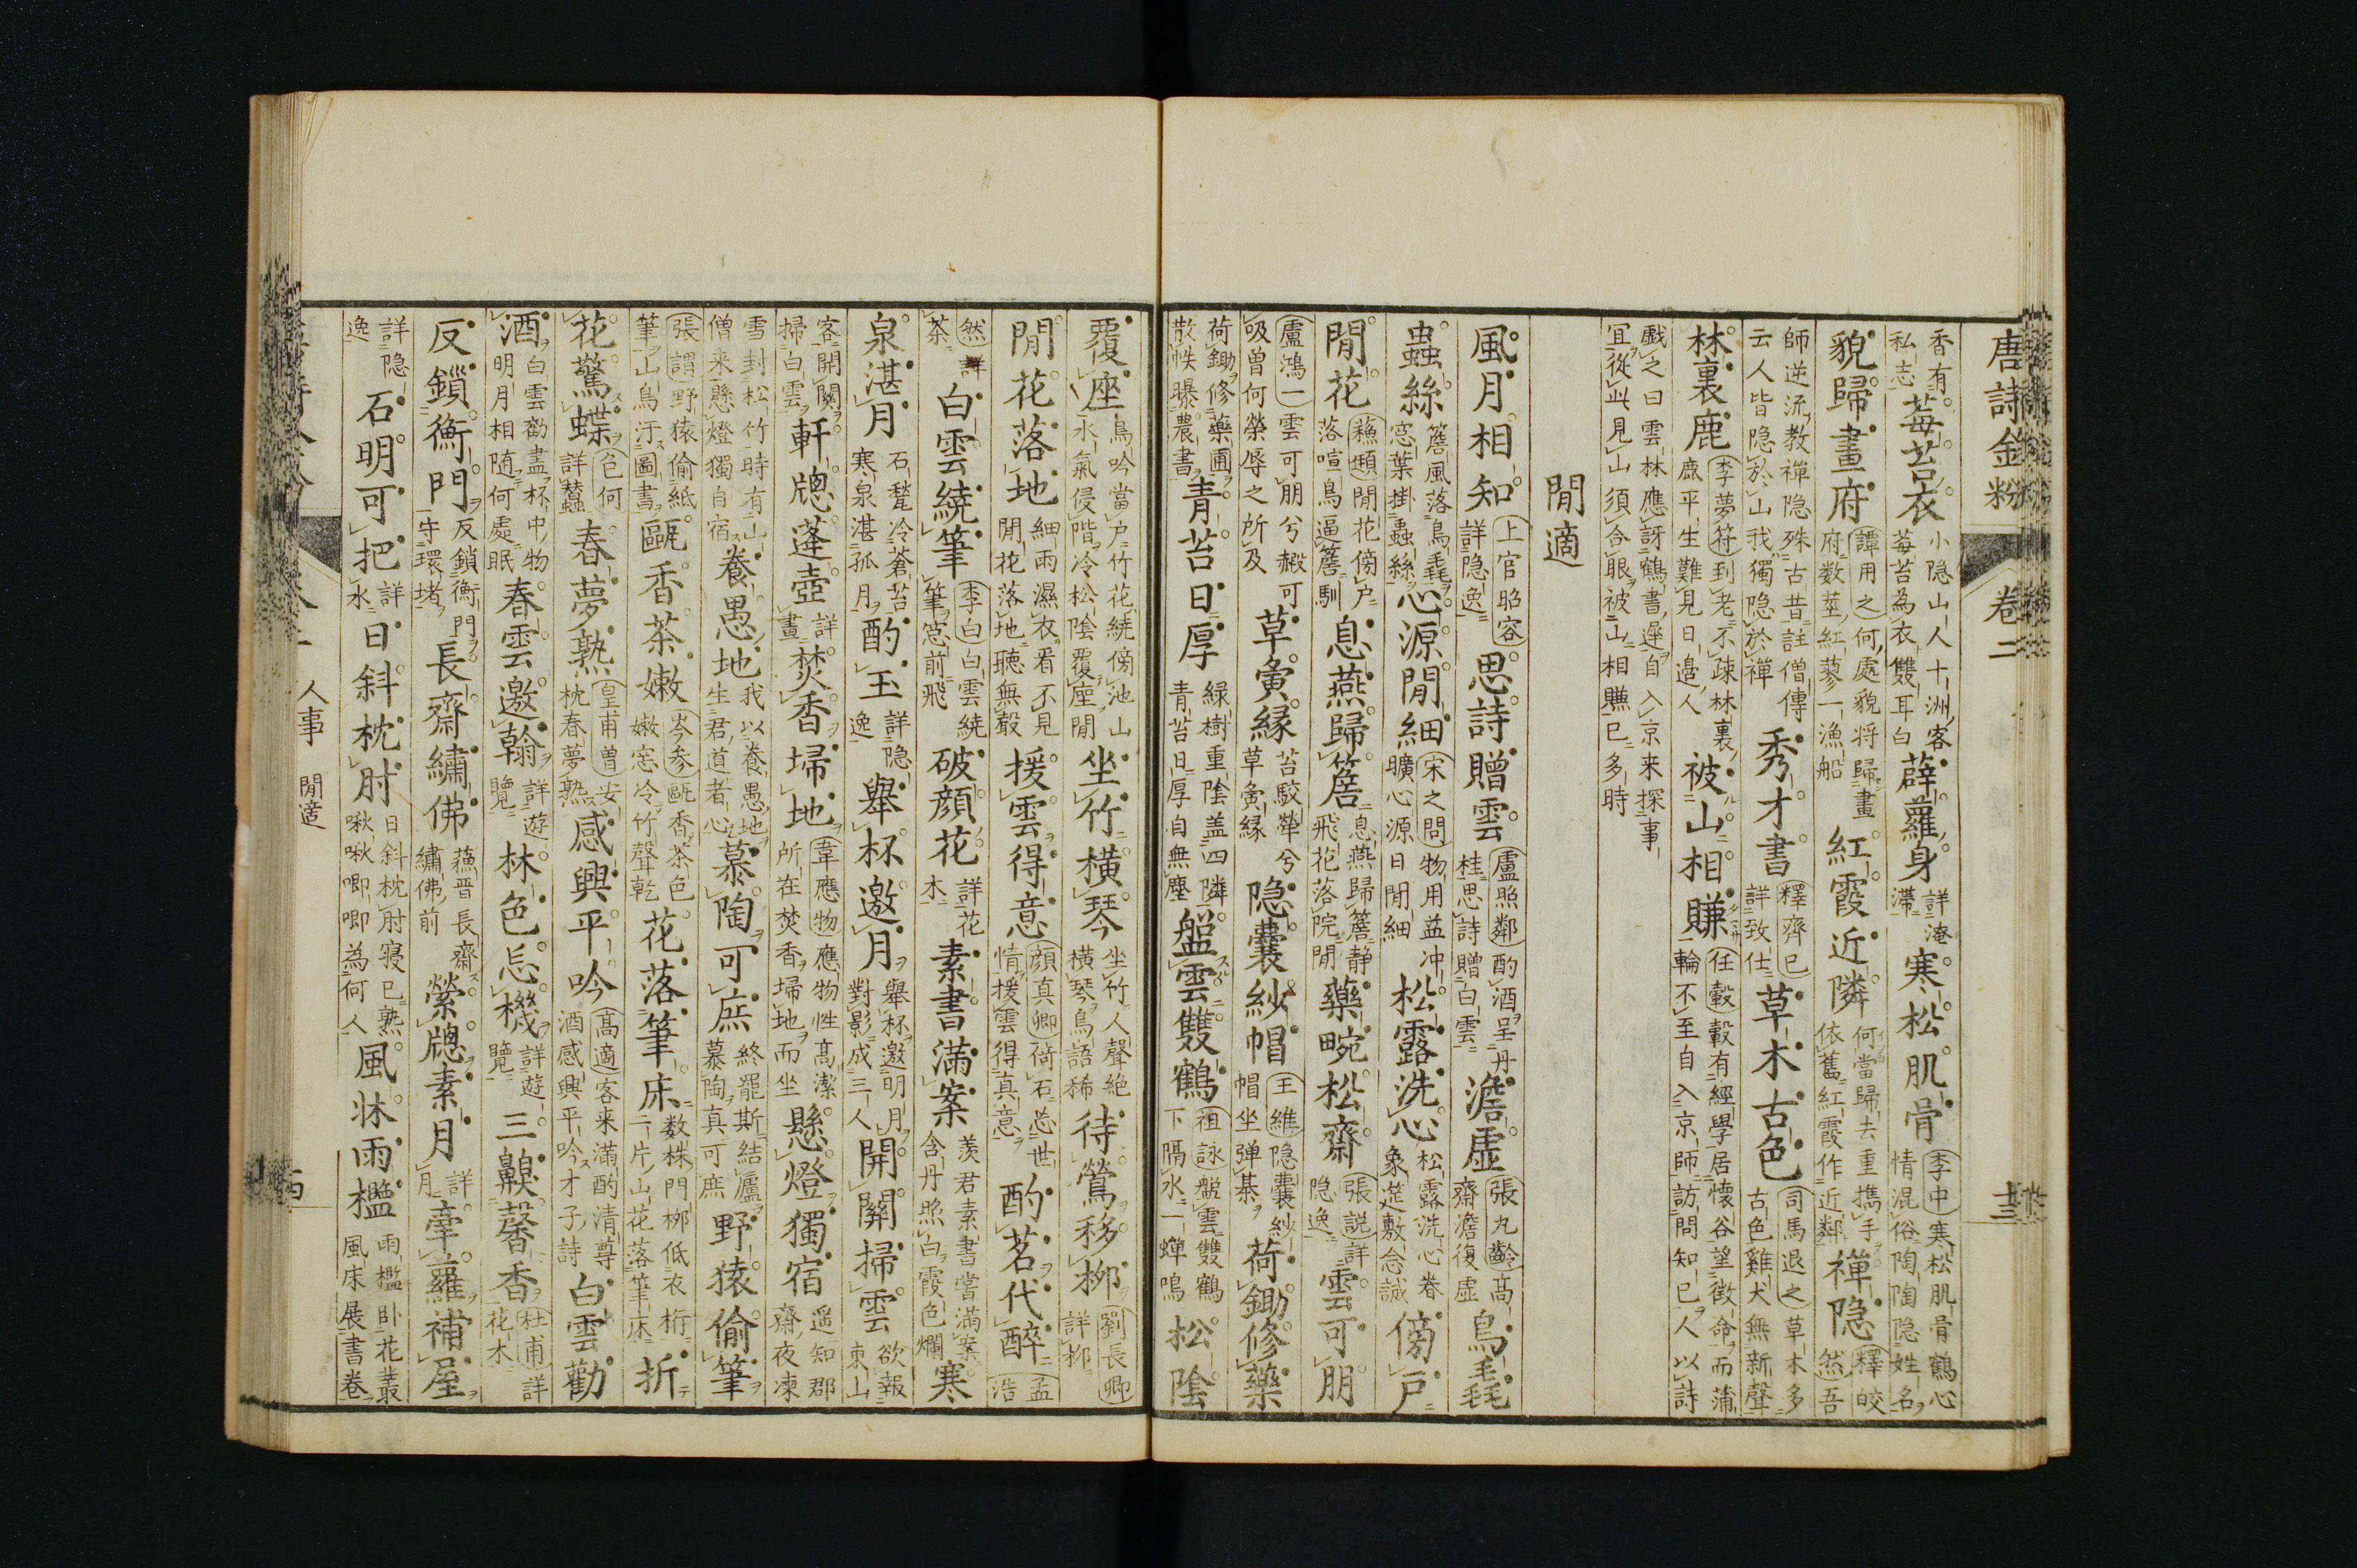 唐詩金粉 卷二 十三
香有私志 莓苔衣 小隐山人十洲客莓苔為衣雙耳白 薜蘿身 詳淹滞 寒松肌骨 李中寒松肌骨鶴心情混俗陶陶隐姓名
貌歸畫府 譚用之何處貌将歸畫府数莖紅蓼一漁船 紅霞近隣 何當歸去重携手依舊紅霞作近鄰 禅隐 釋皎然吾
師逆流教禅隐殊古昔註僧傳云人皆隐於山我獨隐於禅 秀才書 釋齊已詳致仕 草木古色 司馬退之草木多古色雞犬無新聲
林裏鹿 李夢符到老不疎林裏鹿平生難見日邉人 被山相賺 任轂轂有經學居懷谷望徴命而蒲輪不至自入京師訪問知已人以詩
戲之曰雲林應訝鶴書遲自入京来探事宜從此見山須合眼被山相賺已多時
閒適
風月相知 上官昭容詳隐逸 思詩贈雲 盧照鄰酌酒呈丹桂思詩贈白雲 澹虚 張九齡高齋澹復虚 鳥毳
蟲絲 簷風落鳥毳窓葉掛蟲絲 心源閒細 宋之問物用益冲曠心源日閒細 松露洗心 松露洗心眷象筵敷念誠 傍戸
閒花 蘓頲閒花傍戸落喧鳥逼簷馴 息燕歸簷 息燕歸簷静飛花落院閒 藥畹松齋 張説詳隐逸 雲可朋
盧鴻一雲可朋兮霰可吸曽何榮辱之所及 草夤縁 苔駮犖兮草夤縁 隐囊紗帽 王維隐囊紗帽坐弾棊 荷鋤修藥
荷鋤修藥圃散帙曝農書 青苔日厚 緑樹重陰盖四隣青苔日厚自無塵 盤雲雙鶴 祖詠盤雲雙鶴下隔水一蝉鳴 松陰
覆座 鳥吟當户竹花繞傍池山水氣侵階冷松陰覆座閒 坐竹横琴 坐竹人聲絶横琴鳥語稀 待鶯移柳 劉長卿詳柳
閒花落地 細雨濕衣看不見閒花落地聴無聲 援雲得意 顔真卿荷石忩世情援雲得真意 酌茗代醉 孟浩
然詳茶 白雲繞筆 李白白雲繞筆窓前飛 破顔花 詳花木 素書満案 羨君素書嘗満案含丹照白霞色爛 寒
泉湛月 石甃冷蒼苔寒泉湛孤月 酌玉 詳隐逸 舉杯邀月 舉杯邀明月對影成三人 開關掃雲 欲報東山
客開關掃白雲 軒牕蓬壺 詳畫 焚香埽地 韋應物應物性高潔所在焚香埽地而坐 懸燈獨宿 遥知郡齋夜凍
雪封松竹時有山僧来懸燈獨自宿 養愚地 我以養愚地生君道者心 慕陶可庶 終罷斯結廬慕陶真可庶 野猿偷筆
張謂野猿偷紙筆山鳥汙圖書 甌香茶嫩 岑参甌香茶色嫩窓冷竹聲乾 花落筆床 数株門柳低衣桁一片山花落筆床 折
花驚蝶 包何詳蠶 春夢熟 皇甫曽女枕春夢熟 感興平吟 高適客来満酌清尊酒感興平吟才子詩 白雲勸
酒 白雲勸盡杯中物明月相随何處眠 春雲邀翰 詳遊覽 林色忘機 詳遊覽 三嗅馨香 杜甫詳花木
反鎖衡門 反鎖衡門守環堵 長齋繡佛 蘓晋長齋繡佛前 縈牕素月 詳月 牽蘿補屋
詳隐逸 石明可把 詳水 日斜枕肘 日斜枕肘寝已熟啾啾唧唧為何人 風牀雨檻 雨檻卧花叢風床展書卷
人事 閒適